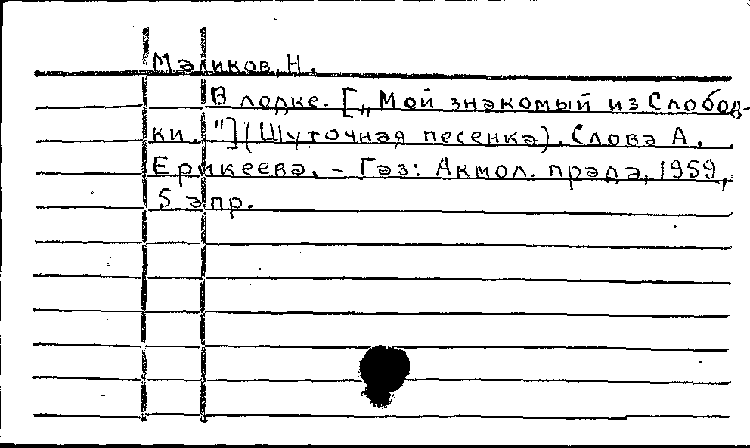 Маликов, Н.
В лодке. [„Мой знакомый из Слобод-
ки."] (Шуточная песенка). Слова А.
Ерикеева. – Газ: Акмол. правда, 1959,
5 апр.